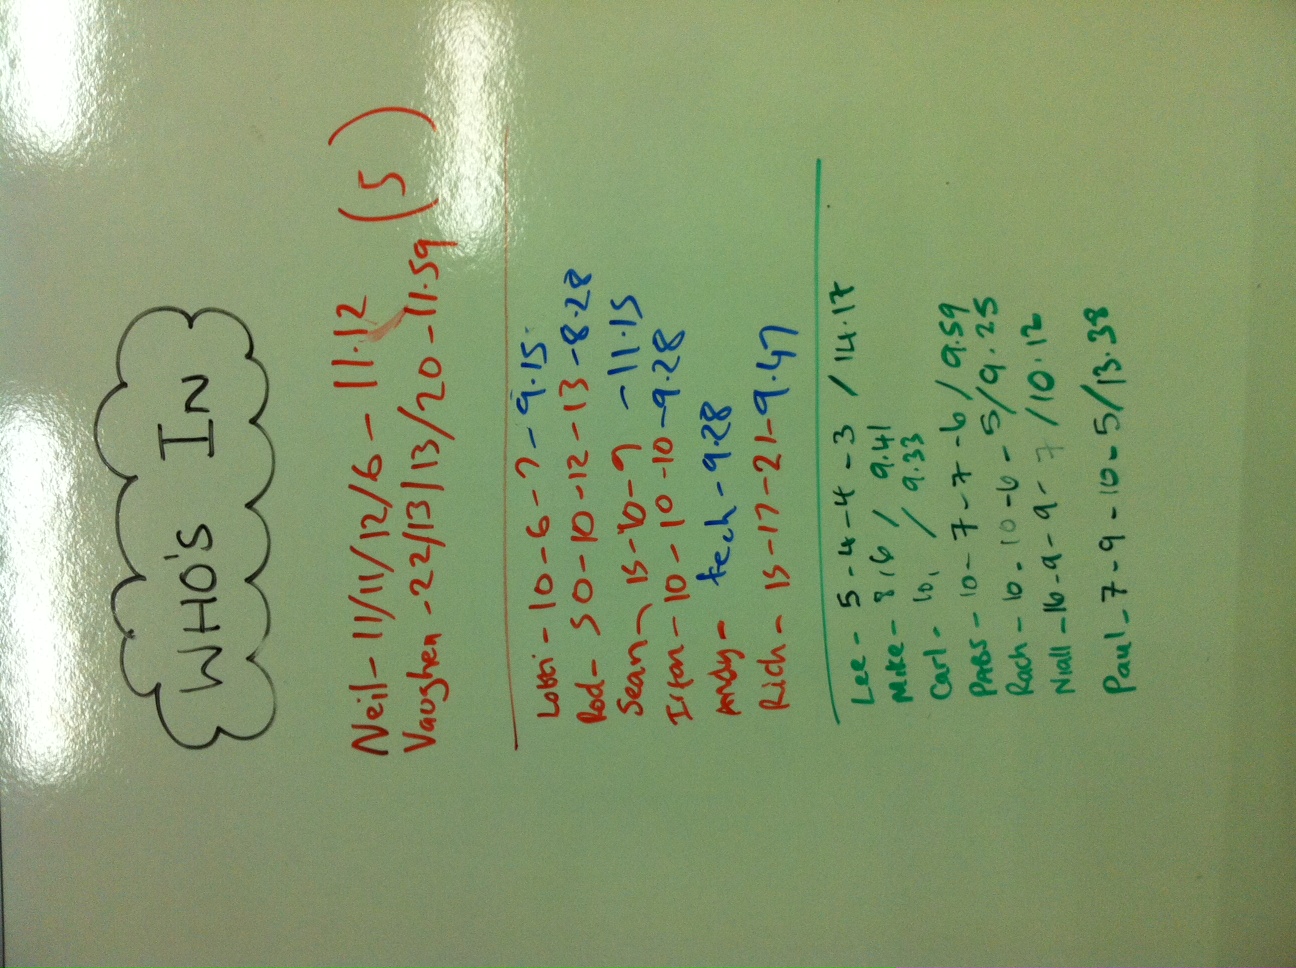 WHO'S IN
Neil - 11/11/12/6 - 11.12
Vaughan - 22/13/13/20 - 11.59
(5)
10 - 6 - 7 - 9.15
Rod - 50 - 10 - 12 - 13 - 8.28
Sean - 15 - 10 - 9 - 11.15
Irfan - 10 - 10 - 10 - 9.28
Andy - tech - 9.28
Rich - 15 - 17 - 21 - 9.47
Lee - 5 - 4 - 4 - 3 / 14.17
Mike - 8,6 / 9.41
Carl - 10, / 9.33
PABS - 10 - 7 - 7 - 6 / 9.59
Rach - 10 - 10 - 6 - 5 / 9.25
Niall - 16 - 9 - 9 - 7 / 10.12
Paul - 7 - 9 - 10 - 5 / 13.38